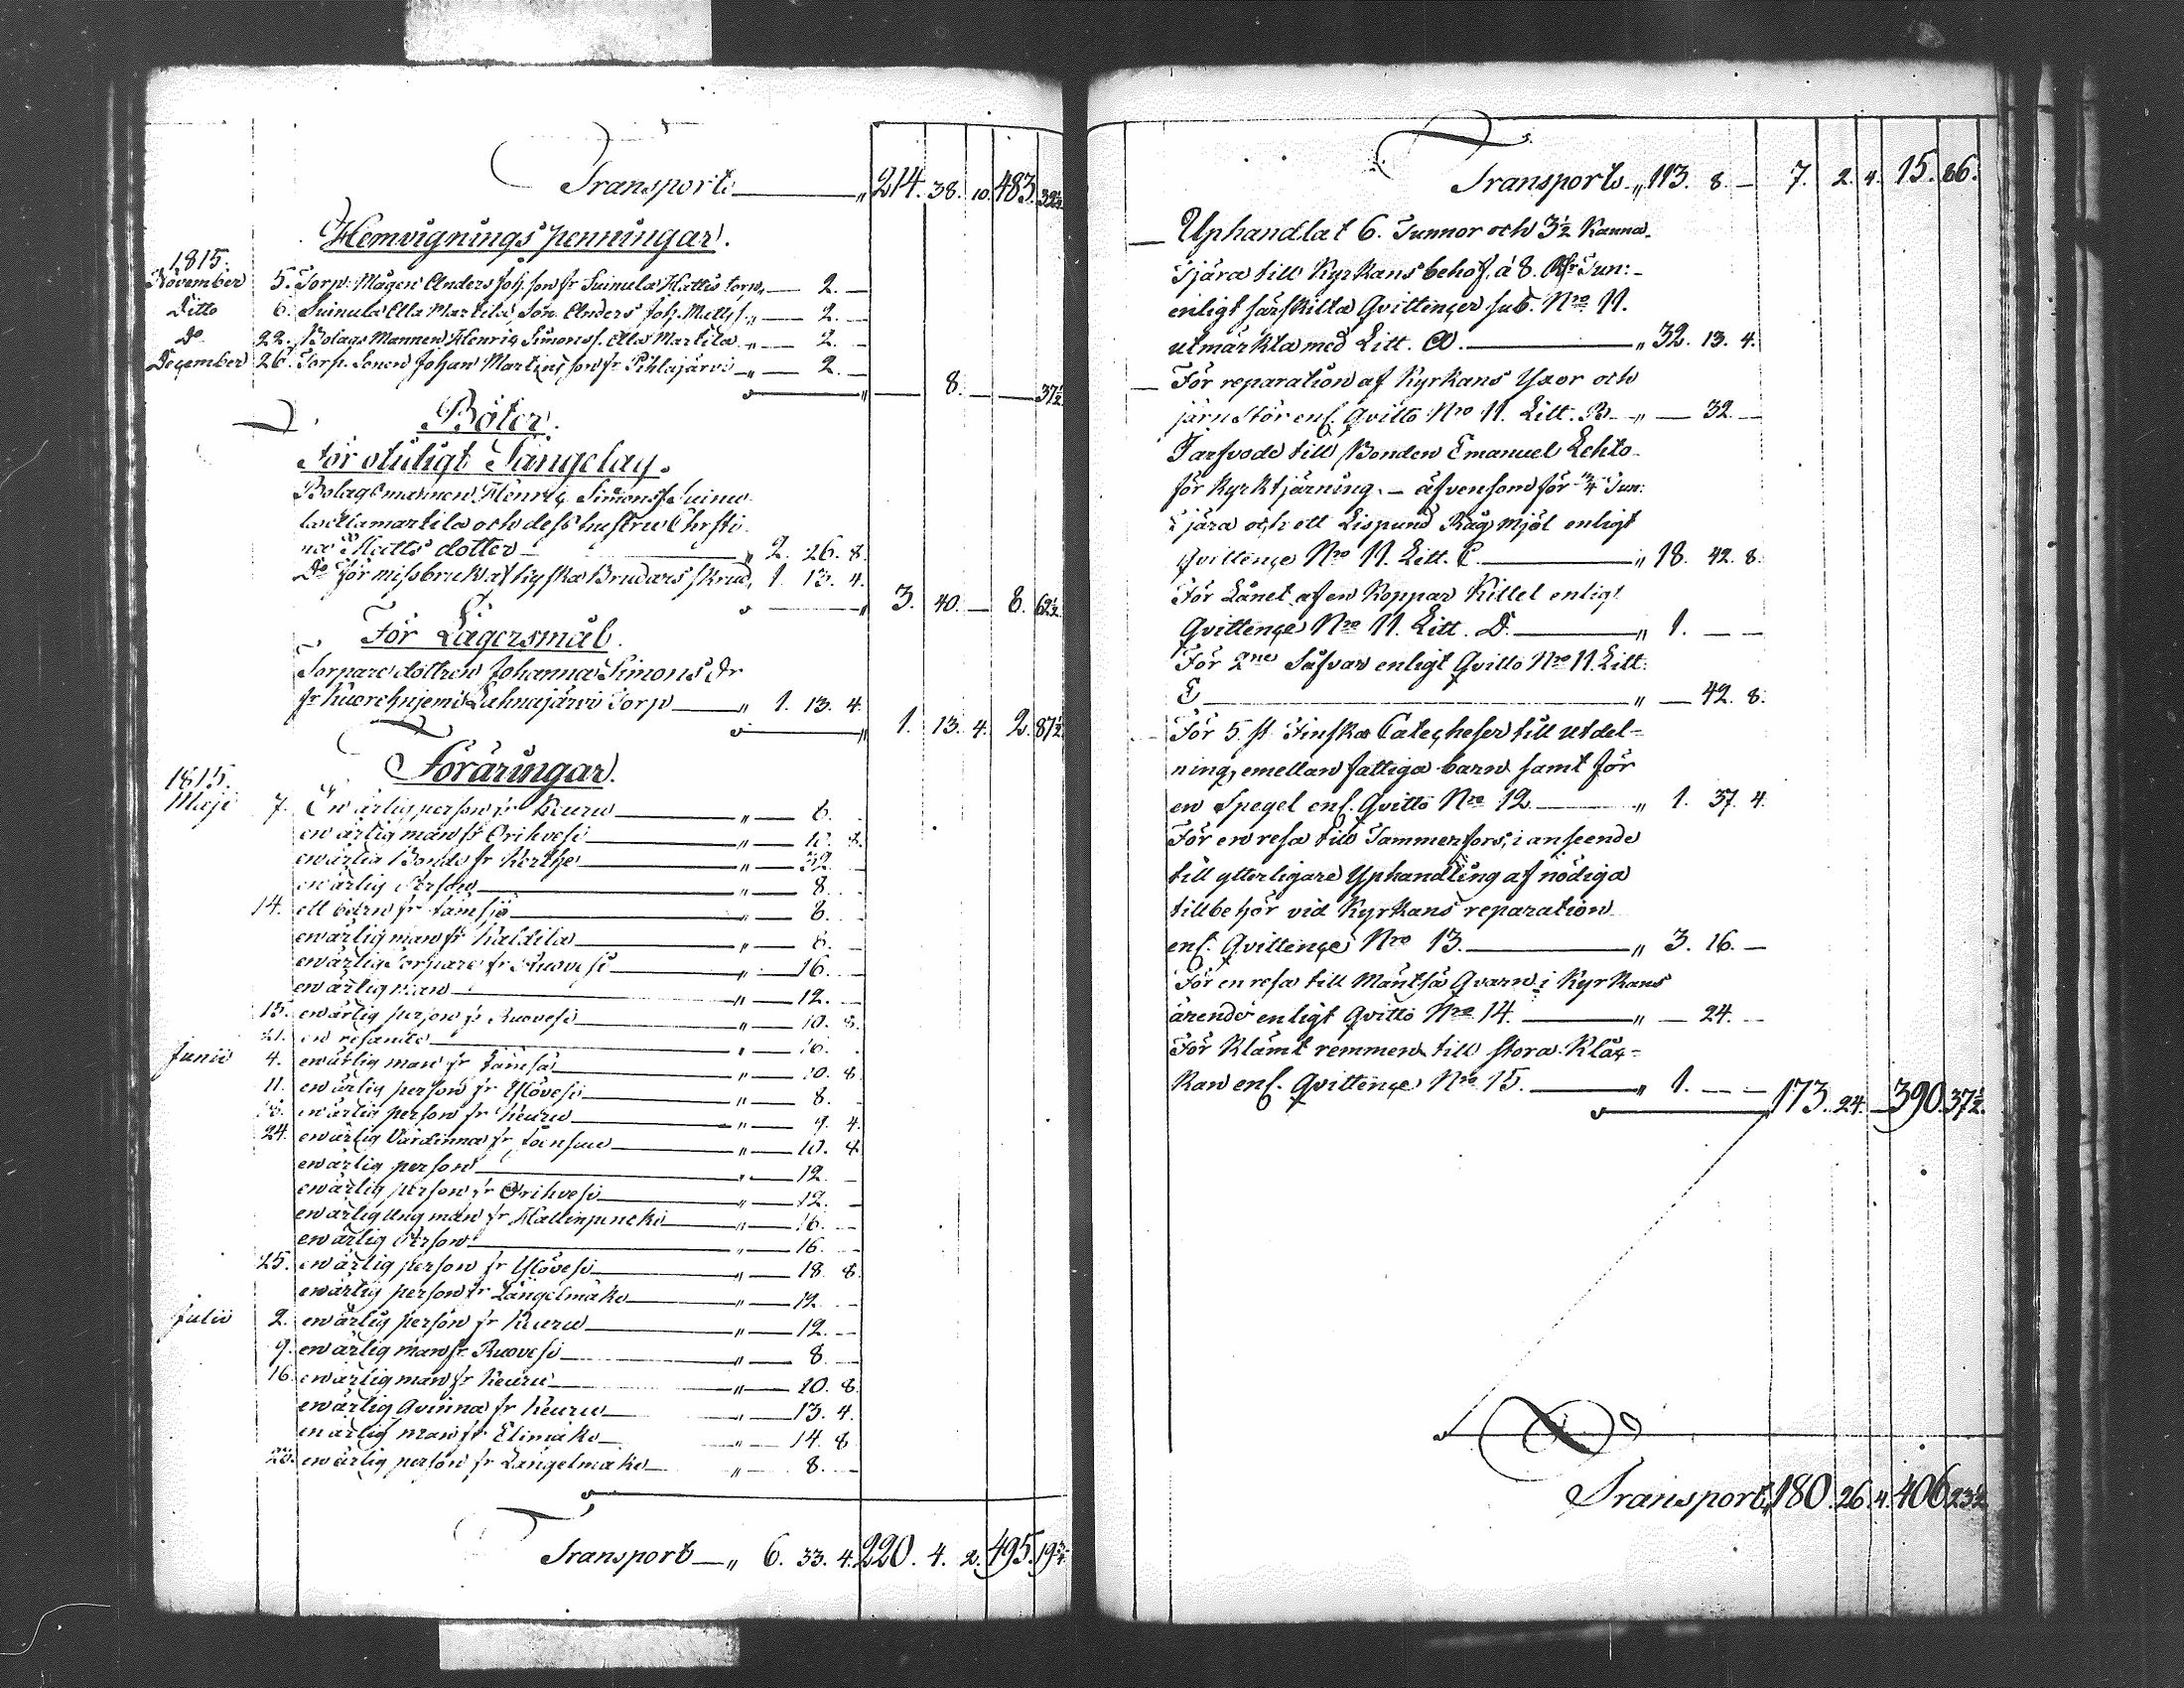 Transport „ 214. 38. 10. 483. 32½
Hemvigningspenningar.
1815.
November 5. Torp. Mågen Anders Joh. son fr Suinula Kattis torp „ — 2. —
Ditto 6. Suinula Alla Martila Son Anders Joh. Matts s. „ — 2. —
Do 22. Bolags Mannen Henric Simonss. Alla Martila „ — 2. —
December 26. Torp. Sonen Johan Martins son fr Pihlajärvi „ — 2. —
„ — 8. — — 37½
Böter.
För otuligt Sängelag.
Bolagsmannen Henric Simonss. Suinu
la Allamartila och dess hustru Christi
na Matts dotter „ 2. 26. 8.
Do för missbruk af Brudars skrud, 1. 13. 4.
„ 3. 40. — 8. 62½
För Lägersmål.
Torpare dottren Johanna Simons dr
fr Lahnajärvi Torp „ 1. 13. 4.
„ 1. 13. 4. 2. 87½
Föräringar.
1815.
Maji 7. En ärlig person fr Keuru „ — 8.
en ärlig man fr Orihvesi „ — 10. 8.
en ärlig Bonde fr „ — 32.
en ärlig Person „ — 8.
14. ett barn fr Jämsjö „ — 8.
en ärlig man fr „ — 8. —
en ärlig Torpare fr Ruovesi „ — 16. —
en ärlig man „ — 12. —
15. en ärlig person fr Ruovesi „ — 10. 8.
21. en resande „ — 16.
Junii 4. en ärlig man fr Jämsä „ — 10. 8.
11. en ärlig person fr Ylövesi „ — 8. —
18. en ärlig person fr Keuru „ — 9. 4.
24. en ärlig Värdinna fr „ — 10. 8.
en ärlig person „ — 12. —
en ärlig person fr Orihvesi „ — 12. —
en ärlig Ung man fr Hallinpencki „ — 16. —
en ärlig Person „ — 16. —
25. en ärlig person fr Ylövesi „ — 18. 8.
en ärlig person fr Längelmäki „ — 12. —
Julii 2. en ärlig person fr Keuru „ — 12. —
9. en ärlig man fr Ruovesi „ — 8. —
16. en ärlig man fr Keuru „ — 10. 8.
en ärlig Qvinna fr Keuru „ — 13. 4.
en ärlig man fr Elimäki „ — 14. 8.
23. en ärlig person fr Längelmäki „ — 8. —
Transport „ 6. 33. 4. 220. 4. 2. 495. 19¾
Transport „ 113. 8. — 7. 2. 4. 15. 86.
— Uphandlat 6. Tunnor och 3½ Kanna
Tjära till Kyrkans behof, à 8. Rdr Tun:
enligt särskilta Qvittencer sub. Nro 11.
utmärkta med Litt. A. „ 32. 13. 4.
— För reparation af Kyrkans Yxor och
järnstör enl. Qvitto Nro 11. Litt. B. „ — 32. —
Tarfvode till Bonden Emanuel Lehto
för Kyrktjärning, — äfvensom för ¼ Tun:
Tjära och ett Lispund Rågmjöl enligt
Qvittence Nro 11. Litt. C. „ 18. 42. 8.
För Lånet af en Koppar Kittel enligt
Qvittence Nro 11. Litt. D. „ 1. — —
För 2ne Såfvar enligt Qvitto Nro 11. Litt:
E „ — 42. 8.
För 5. st. Finska Catecheser till utdel=
ning, emellan fattiga barn samt för
en Spegel enl. Qvitto Nro 12. „ 1. 37. 4.
För en resa till Tammerfors, i anseende
till ytterligare Uphandling af nödiga
tillbehör vid Kyrkans reparation
enl. Qvittence Nro 13. „ 3. 16. —
För en resa till Mäntsä Qvarn i Kyrkans
ärende enligt Qvitto Nro 14. „ — 24. —
För Klämt remmen till stora Kläc=
kan enl. Qvittence Nro 15. „ 1. — —
173. 24. — 390. 37½.
Transport „ 180. 26. 4. 406. 23½